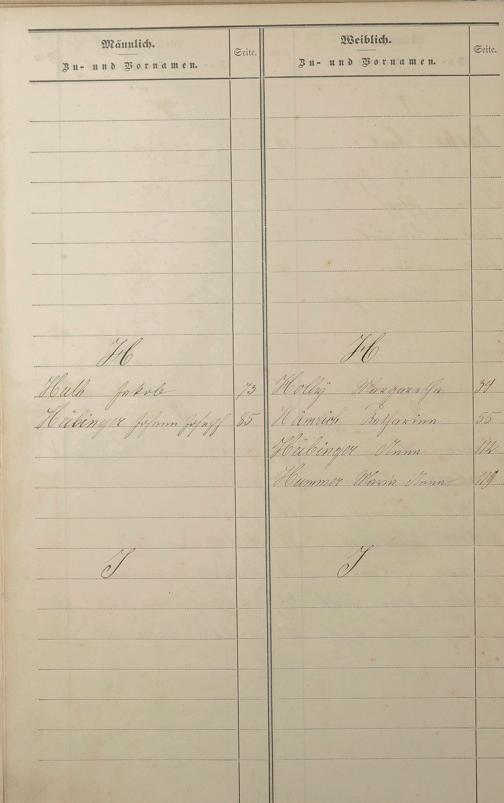 Männlich.
Zu- und Vornamen.
Seite.
Weiblich.
Zu- und Vornamen.
Seite.
H
Huth Jakob 73
Hübinger Johann Joseph 85
H
Holly Margaretha 31
Hämrich Katharina 55
Hübinger Anna 112
Hummer Maria Anna 119
I
I